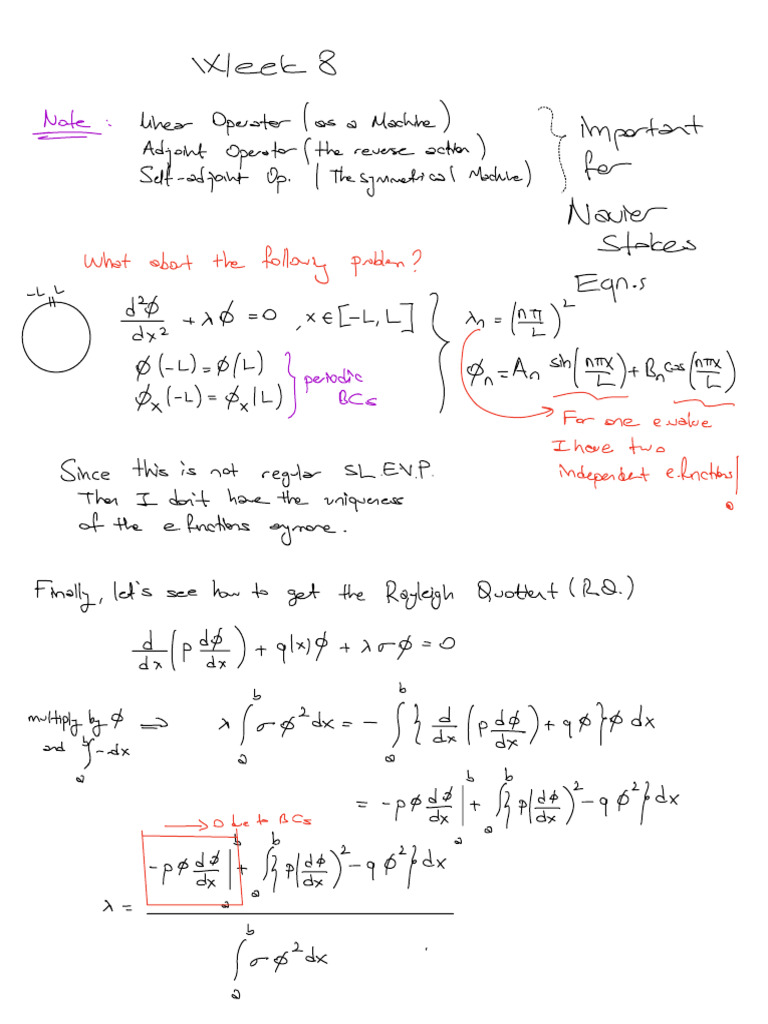 Week 8
Note : Linear Operator (as a Machine)
Adjoint Operator (the reverse action)
Self-adjoint Op. (The symmetrical Machine)
important
for
Navier
Stokes
Eqn.s
What about the following problem?
-L L
d²ϕ/dx² + λϕ = 0 , x ∈ [-L, L]
ϕ(-L) = ϕ(L)
ϕₓ(-L) = ϕₓ(L)
periodic
BCs
λₙ = (nπ/L)²
ϕₙ = Aₙ sin(nπx/L) + Bₙ cos(nπx/L)
For one e.value
I have two
independent e.functions!
Since this is not regular S.L.E.V.P.
Then I don't have the uniqueness
of the e.functions aymore.
Finally, let's see how to get the Rayleigh Quotient (R.Q.)
d/dx (p dϕ/dx) + q(x)ϕ + λσϕ = 0
multiply by ϕ
and ∫ₐᵇ - dx
⇒ λ ∫ₐᵇ σϕ² dx = - ∫ₐᵇ { d/dx (p dϕ/dx) + qϕ } ϕ dx
= -pϕ dϕ/dx |ₐᵇ + ∫ₐᵇ { p(dϕ/dx)² - qϕ² } dx
→ 0 due to BCs
λ = ( -pϕ dϕ/dx |ₐᵇ + ∫ₐᵇ { p(dϕ/dx)² - qϕ² } dx ) / ( ∫ₐᵇ σϕ² dx )